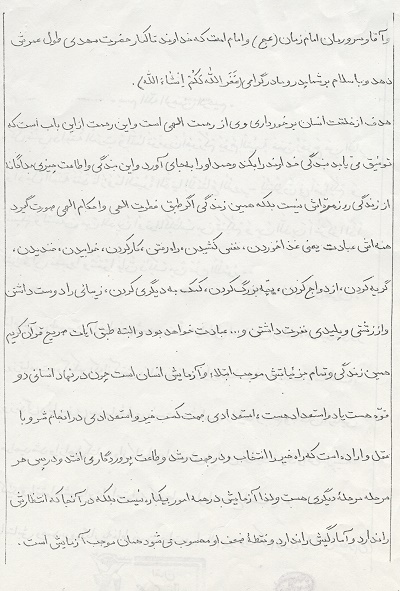 و آقا و سرورمان امام زمان (عج) و امام امت که خداوند تا کنار حضرت مهدی طول عمرش
دهد و با سلام بر شما پدر و مادر گرامی (غَفَرَ اللهُ لَکُم اِنشاءَ الله).
هدف از خلقت انسان برخورداری وی از رحمت الهی است و این رحمت از این باب است که
توفیق می‌یابد بندگی خداوند را بکند و حمد او را بجای آورد و این بندگی و اطاعت چیزی جداگانه
از زندگی روزمره‌اش نیست بلکه همین زندگی اگر طبق فطرت الهی و احکام الهی صورت گیرد
همه‌اش عبادت یعنی غذا خوردن، نفس کشیدن، راه رفتن، کار کردن، خوابیدن، خندیدن،
گریه کردن، ازدواج کردن، بچه بزرگ کردن، کمک به دیگری کردن، زیبائی را دوست داشتن
و از زشتی و پلیدی نفرت داشتن و... عبادت خواهد بود و البته طبق آیات صریح قرآن کریم
همین زندگی و تمام جزئیاتش موجب ابتلاء و آزمایش انسان است چون در نهاد انسانی دو
قوّه هست یا دو استعداد هست، استعدادی جهت کسب خیر و استعدادی در انجام شر و با
عقل و اراده است که راه خیر را انتخاب و در جهت رشد و طاعت پروردگاری افتد و در پس هر
مرحله مرحلهٔ دیگری هست و لذا آزمایش در همه امور یکبار نیست بلکه در آنجا که انتظارش
را ندارد و آمادگیش را ندارد و نقطهٔ ضعف او محسوب می‌شود همان موجب آزمایش است.